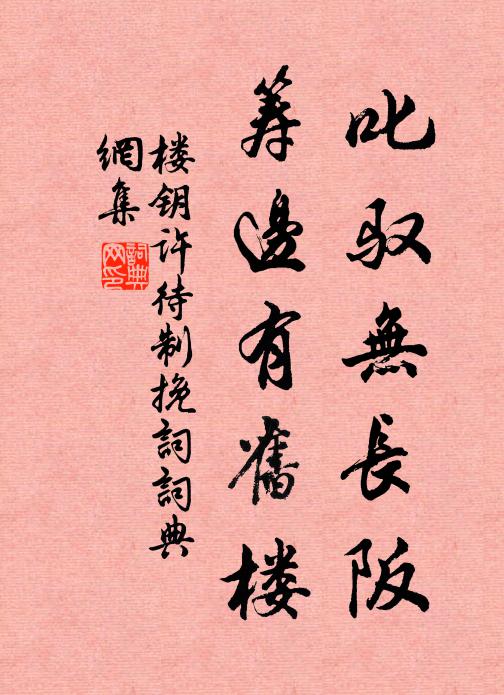 叱驭無長阪
筹邊有舊楼
楼钥许待制挽詞詞典
網集
詞典网印